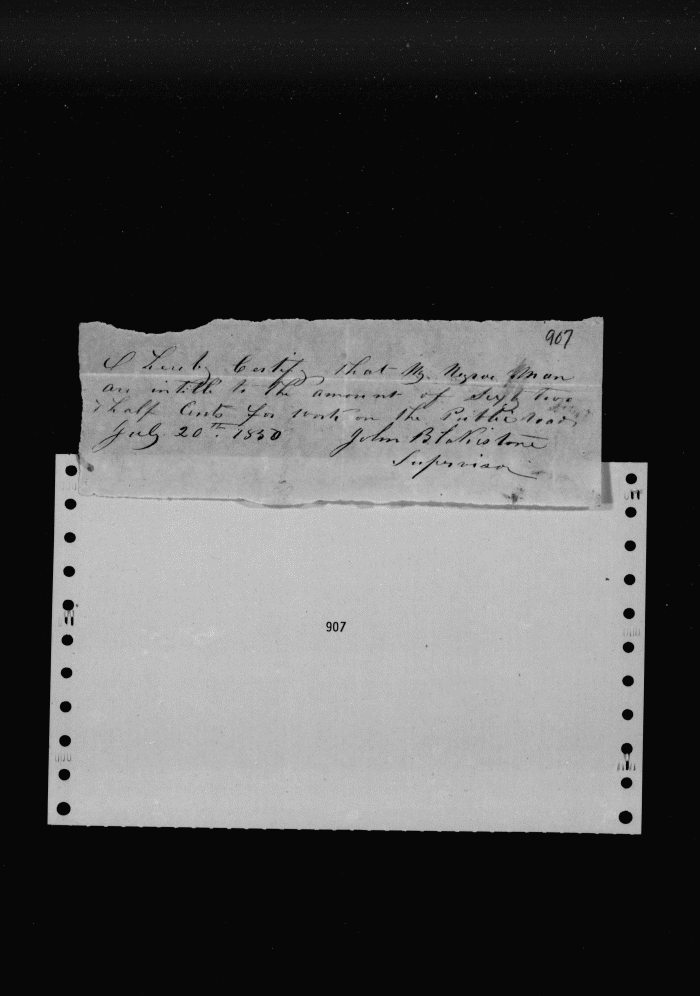 907
I hereby Certify that My Negroe Man
are intitle to the amount of Sixty two
& half Cents for work on the Public road
July 20th. 1850 John Blakistone
Supervisor
907